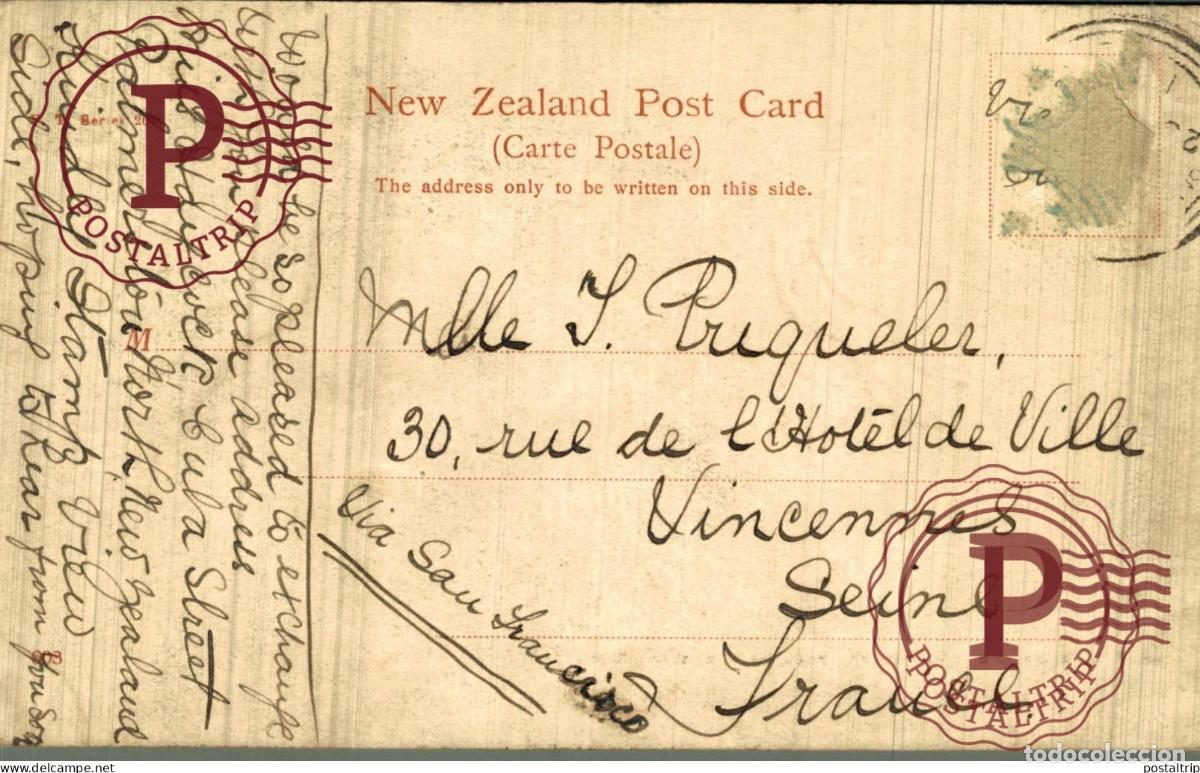 New Zealand Post Card
(Carte Postale)
The address only to be written on this side.
Mlle J. Pruqueler,
30, rue de l'Hotêl de Ville
Vincennes
Seine
France
Via San Francisco
M
Would be so pleased to exchange
with you Please address
Miss Cuba Street
Palmerston North, New Zealand
Kindly Stamp View
Side, Hoping to hear from you soon
Series
P
POSTALTRIP
P
POSTALTRIP
todocoleccion
www.todocoleccion.net
postaltrip